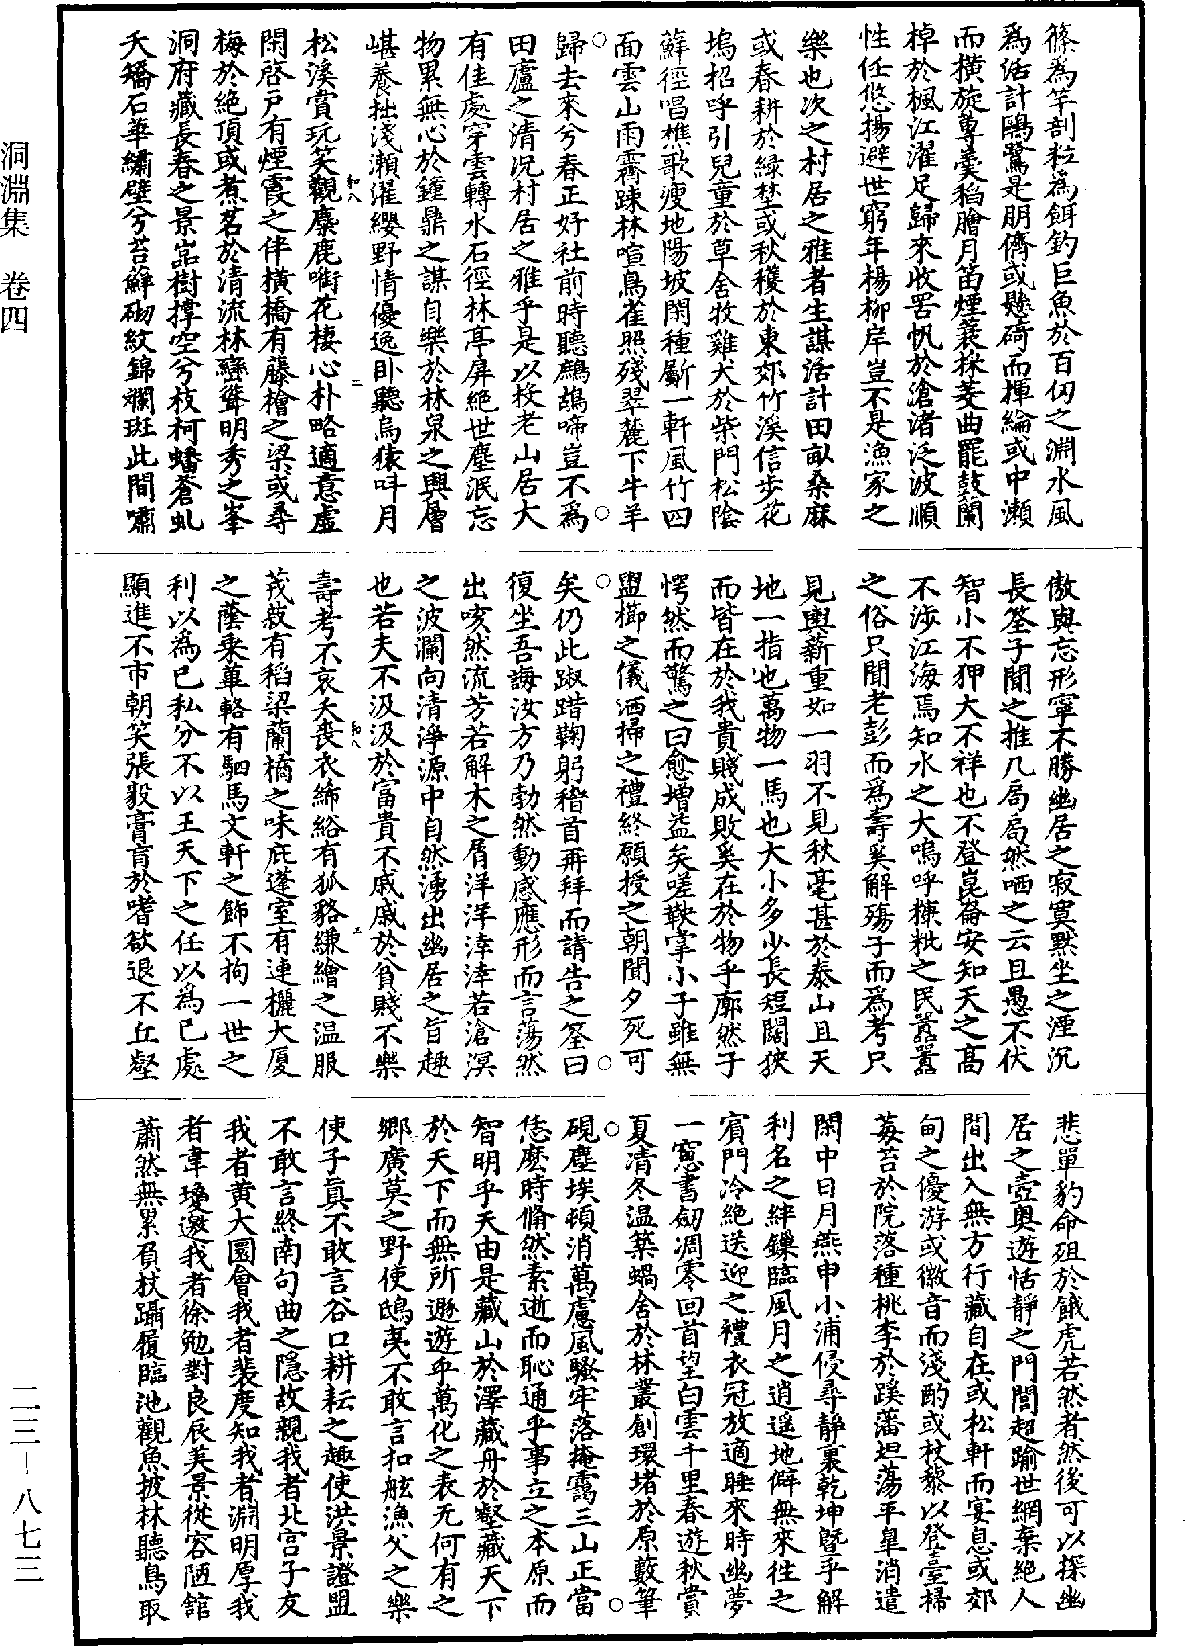 洞淵集　卷四
篠為竿剖粒為餌釣巨魚於百仞之淵水風
為活計鷗鷺是朋儕或懸碕而揮綸或中瀨
而橫旋蓴羹稻膾月笛煙蓑採菱曲罷鼓蘭
棹於楓江濯足歸來收罟帆於滄渚泛波順
性任悠揚避世窮年楊柳岸豈不是漁家之
樂也次之村居之雅者生謀活計田畝桑麻
或春耕於綠埜或秋穫於東郊竹溪信步花
塢招呼引兒童於草舍牧雞犬於柴門松陰
蘚徑唱樵歌瘦地陽坡閑種斸一軒風竹四
面雲山雨霽踈林喧鳥雀照殘翠麓下牛羊
歸去來兮春正好社前時聽鷓鴣啼豈不為
田廬之清況村居之雅乎是以校老山居大
有佳處穿雲轉水石徑林亭屏絕世塵泯忘
物累無心於鍾鼎之謀自樂於林泉之興層
嵁養拙淺瀨濯纓野情優逸卧聽烏猿呌月
松溪賞玩笑觀麋鹿啣花棲心朴略適意虛
閑啓戶有煙霞之伴橫橋有藤檜之梁或尋
梅於絕頂或煮茗於清流林巒聳明秀之峯
洞府藏長春之景嵓樹撑空兮枝柯蟠蒼虬
夭矯石華繡壁兮苔蘚砌紋錦斕斑此間嘯
傲與忘形寧不勝幽居之寂寞默坐之湮沉
長筌子聞之推几局局然哂之云且愚不伏
智小不狎大不祥也不登崑崙安知天之高
不涉江海焉知水之大嗚呼糠粃之民囂囂
之俗只聞老彭而為壽奚解殤子而為考只
見輿薪重如一羽不見秋毫甚於泰山且天
地一指也萬物一馬也大小多少長短闊狹
而皆在於我貴賤成敗奚在於物乎廓然子
愕然而驚之曰愈增益矣嗟鞅掌小子雖無
盥櫛之儀洒掃之禮終願授之朝聞夕死可
矣仍此踧踖鞠躬稽首再拜而請告之筌曰
復坐吾誨汝方乃勃然動感應形而言蕩然
出咳然流芳若解木之屑洋洋涬涬若滄溟
之波瀾向清淨源中自然湧出幽居之旨趣
也若夫不汲汲於富貴不戚戚於貧賤不樂
壽考不哀夭喪衣絺綌有狐貉縑繒之温服
莪敍有稻粱蘭橘之味庇蓬室有連欐大厦
之蔭乘蓽輅有駟馬文軒之飾不拘一世之
利以為己私分不以王天下之任以為己處
顯進不市朝笑張毅膏肓於嗜欲退不丘壑
悲單豹命殂於餓虎若然者然後可以探幽
居之壼奥遊恬靜之門閭超踰世網棄絕人
間出入無方行藏自在或松軒而宴息或郊
甸之優游或徽音而淺酌或杖藜以登臺掃
莓苔於院落種桃李於蹊藩坦蕩平臯消遣
閑中日月燕申小浦侵尋靜裏乾坤曁乎解
利名之絆鏁臨風月之逍遥地僻無來往之
賔門冷絕送迎之禮衣冠放適睡來時幽夢
一窻書劒凋零回首望白雲千里春遊秋賞
夏清冬温築蝸舍於林叢創環堵於原藪筆
硯塵埃頓消萬慮風騷牢落掩靄三山正當
恁麽時翛然素逝而恥通乎事立之本原而
智明乎天由是藏山於澤藏舟於壑藏天下
於天下而無所遯遊乎萬化之表无何有之
鄉廣莫之野使鴟夷不敢言扣舷漁父之樂
使子真不敢言谷口耕耘之趣使洪景證盟
不敢言終南句曲之隱故親我者北宫子友
我者黄大園會我者裴度知我者淵明厚我
者韋瓊邀我者徐勉對良辰美景從容陋館
蕭然無累負杖躡履臨池觀魚披林聽鳥取
二三－八七三